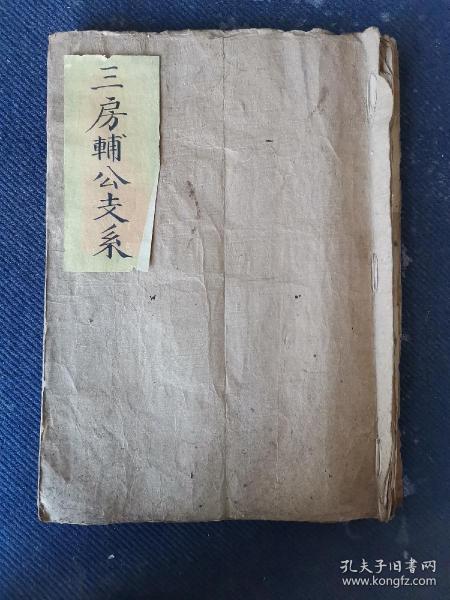 三房輔公支系
孔夫子旧书网
www.kongfz.com